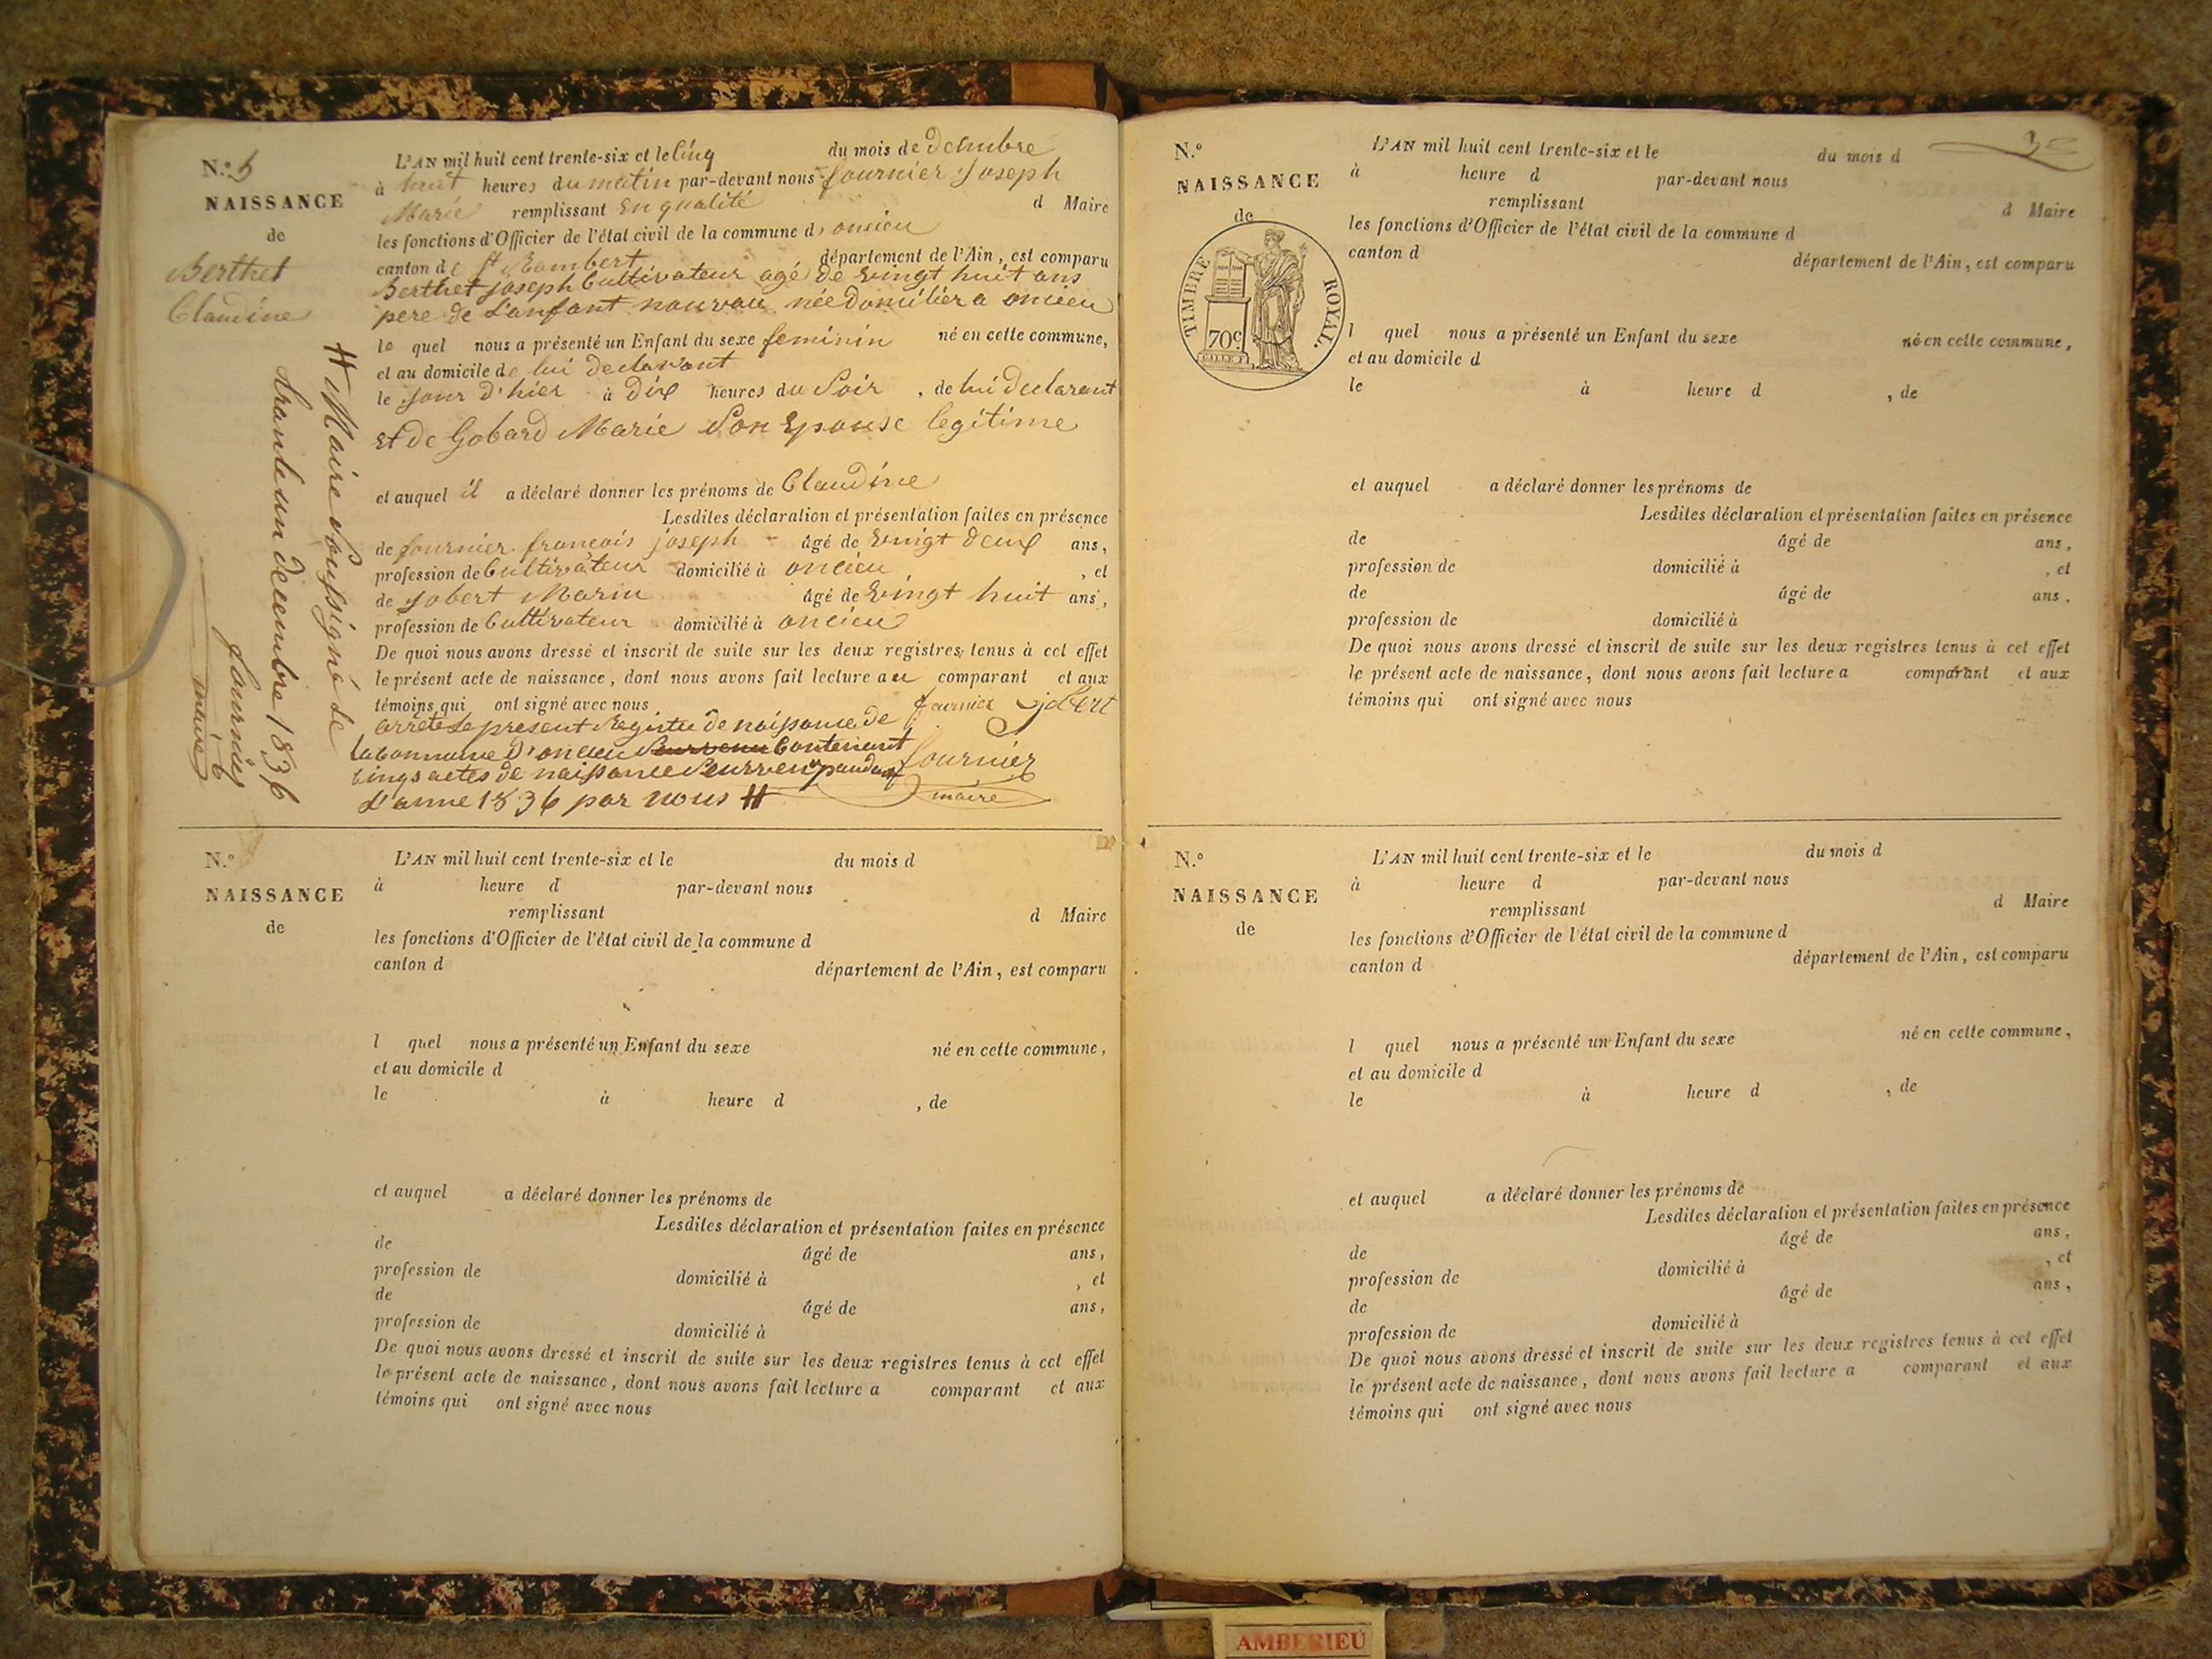 N.° 5
NAISSANCE
de
Berthet
Claudine
L'AN mil huit cent trente-six et le Cinq du mois de decembre
à huit heures du matin par-devant nous fournier Joseph
Marie remplissant En qualité d Maire
les fonctions d'Officier de l'état civil de la commune d'oncieu
canton de St Rambert département de l'Ain, est comparu
Berthet joseph Cultivateur agé de vingt huit ans
pere de L'anfant nouvau née Domilier a oncieu
le quel nous a présenté un Enfant du sexe feminin né en cette commune,
et au domicile de lui declarant
le jour d'hier à Dix heures du Soir, de lui declarant
Et de Gobard Marie Son Epouse legitime
et auquel il a déclaré donner les prénoms de Claudine
Lesdites déclaration et présentation faites en présence
de fournier francois joseph âgé de vingt deux ans,
profession de Cultivateur domicilié à oncieu, et
de jobert Marin âgé de vingt huit ans,
profession de Cultivateur domicilié à oncieu
De quoi nous avons dressé et inscrit de suite sur les deux registres tenus à cet effet
le présent acte de naissance, dont nous avons fait lecture au comparant et aux
témoins qui ont signé avec nous
fournier jobert
arrete Le present Registre de naissance de
la Commune D'oncieu Contenant
Cinqs actes de naissance
L'anne 1836 par nous #
fournier
maire
# Maire Soussigné Le
trante un decembre 1836
fournier
maire
N.°
NAISSANCE
de
L'AN mil huit cent trente-six et le du mois d
à heure d par-devant nous
remplissant d Maire
les fonctions d'Officier de l'état civil de la commune d
canton d département de l'Ain, est comparu
l quel nous a présenté un Enfant du sexe né en cette commune,
et au domicile d
le à heure d , de
et auquel a déclaré donner les prénoms de
Lesdites déclaration et présentation faites en présence
de âgé de ans,
profession de domicilié à , et
de âgé de ans,
profession de domicilié à
De quoi nous avons dressé et inscrit de suite sur les deux registres tenus à cet effet
le présent acte de naissance, dont nous avons fait lecture a comparant et aux
témoins qui ont signé avec nous
N.°
NAISSANCE
de
TIMBRE ROYAL.
70c
L'AN mil huit cent trente-six et le du mois d
à heure d par-devant nous
remplissant d Maire
les fonctions d'Officier de l'état civil de la commune d
canton d département de l'Ain, est comparu
l quel nous a présenté un Enfant du sexe né en cette commune,
et au domicile d
le à heure d , de
et auquel a déclaré donner les prénoms de
Lesdites déclaration et présentation faites en présence
de âgé de ans,
profession de domicilié à , et
de âgé de ans,
profession de domicilié à
De quoi nous avons dressé et inscrit de suite sur les deux registres tenus à cet effet
le présent acte de naissance, dont nous avons fait lecture a comparant et aux
témoins qui ont signé avec nous
N.°
NAISSANCE
de
L'AN mil huit cent trente-six et le du mois d
à heure d par-devant nous
remplissant d Maire
les fonctions d'Officier de l'état civil de la commune d
canton d département de l'Ain, est comparu
l quel nous a présenté un Enfant du sexe né en cette commune,
et au domicile d
le à heure d , de
et auquel a déclaré donner les prénoms de
Lesdites déclaration et présentation faites en présence
de âgé de ans,
profession de domicilié à , et
de âgé de ans,
profession de domicilié à
De quoi nous avons dressé et inscrit de suite sur les deux registres tenus à cet effet
le présent acte de naissance, dont nous avons fait lecture a comparant et aux
témoins qui ont signé avec nous
AMBERIEU